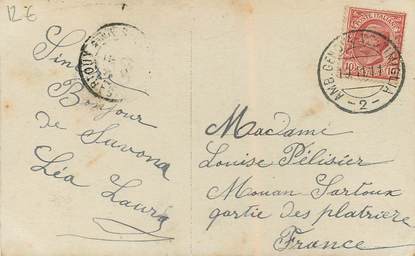 12 €
Sinc
Bonjour
de Savona
Léa Laura
SARTOUX
POSTE ITALIANE
10 10
AMB. GENOVA
-2-
Madame
Louise Pélisier
Mouan Sartoux
partie des platriere
France